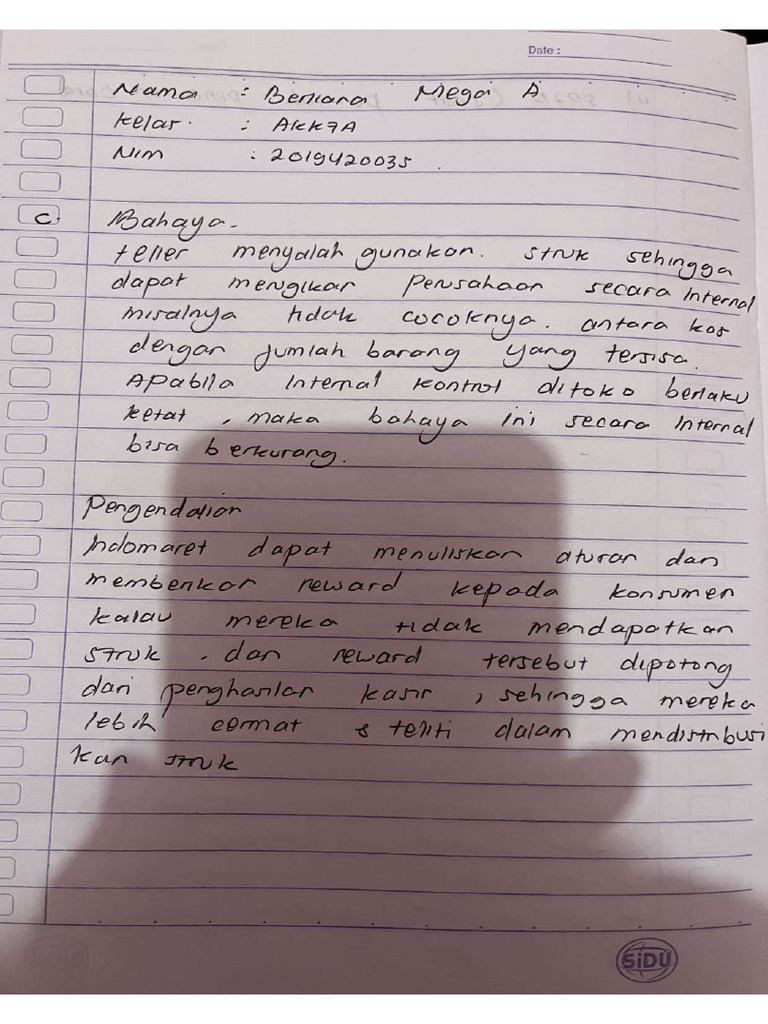 Date :
Nama : Beniara Mega A
Kelas : AKK7A
Nim : 2019420035
c. Bahaya.
teller menyalah gunakan. struk sehingga
dapat merugikan Perusahaan secara Internal
misalnya tidak cocoknya. antara kas
dengan jumlah barang yang tersisa.
APabila Internal kontrol ditoko berlaku
ketat, maka bahaya ini secara Internal
bisa berkurang.
Pengendalian
Indomaret dapat menuliskan aturan dan
memberikan reward kepada konsumen
kalau mereka tidak mendapatkan
struk. dan reward tersebut dipotong
dari penghasilan kasir, sehingga mereka
lebih cermat & teliti dalam mendistribusi
kan struk
SiDU